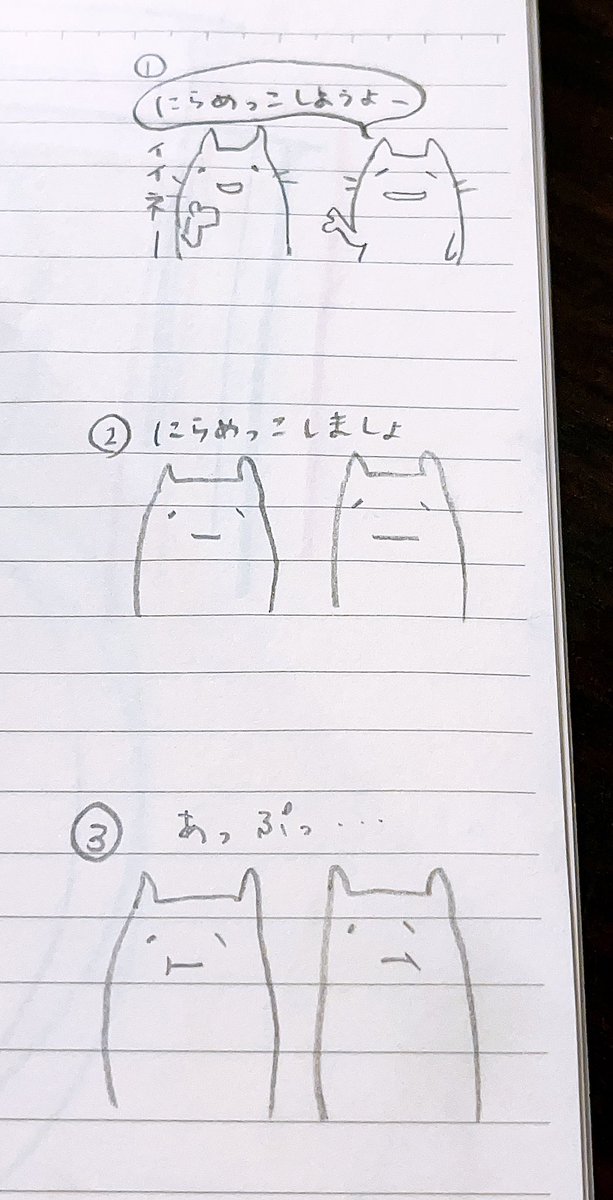 ①
にらめっこしようよー
イイネー
② にらめっこしましょ
③ あっぷっ・・・